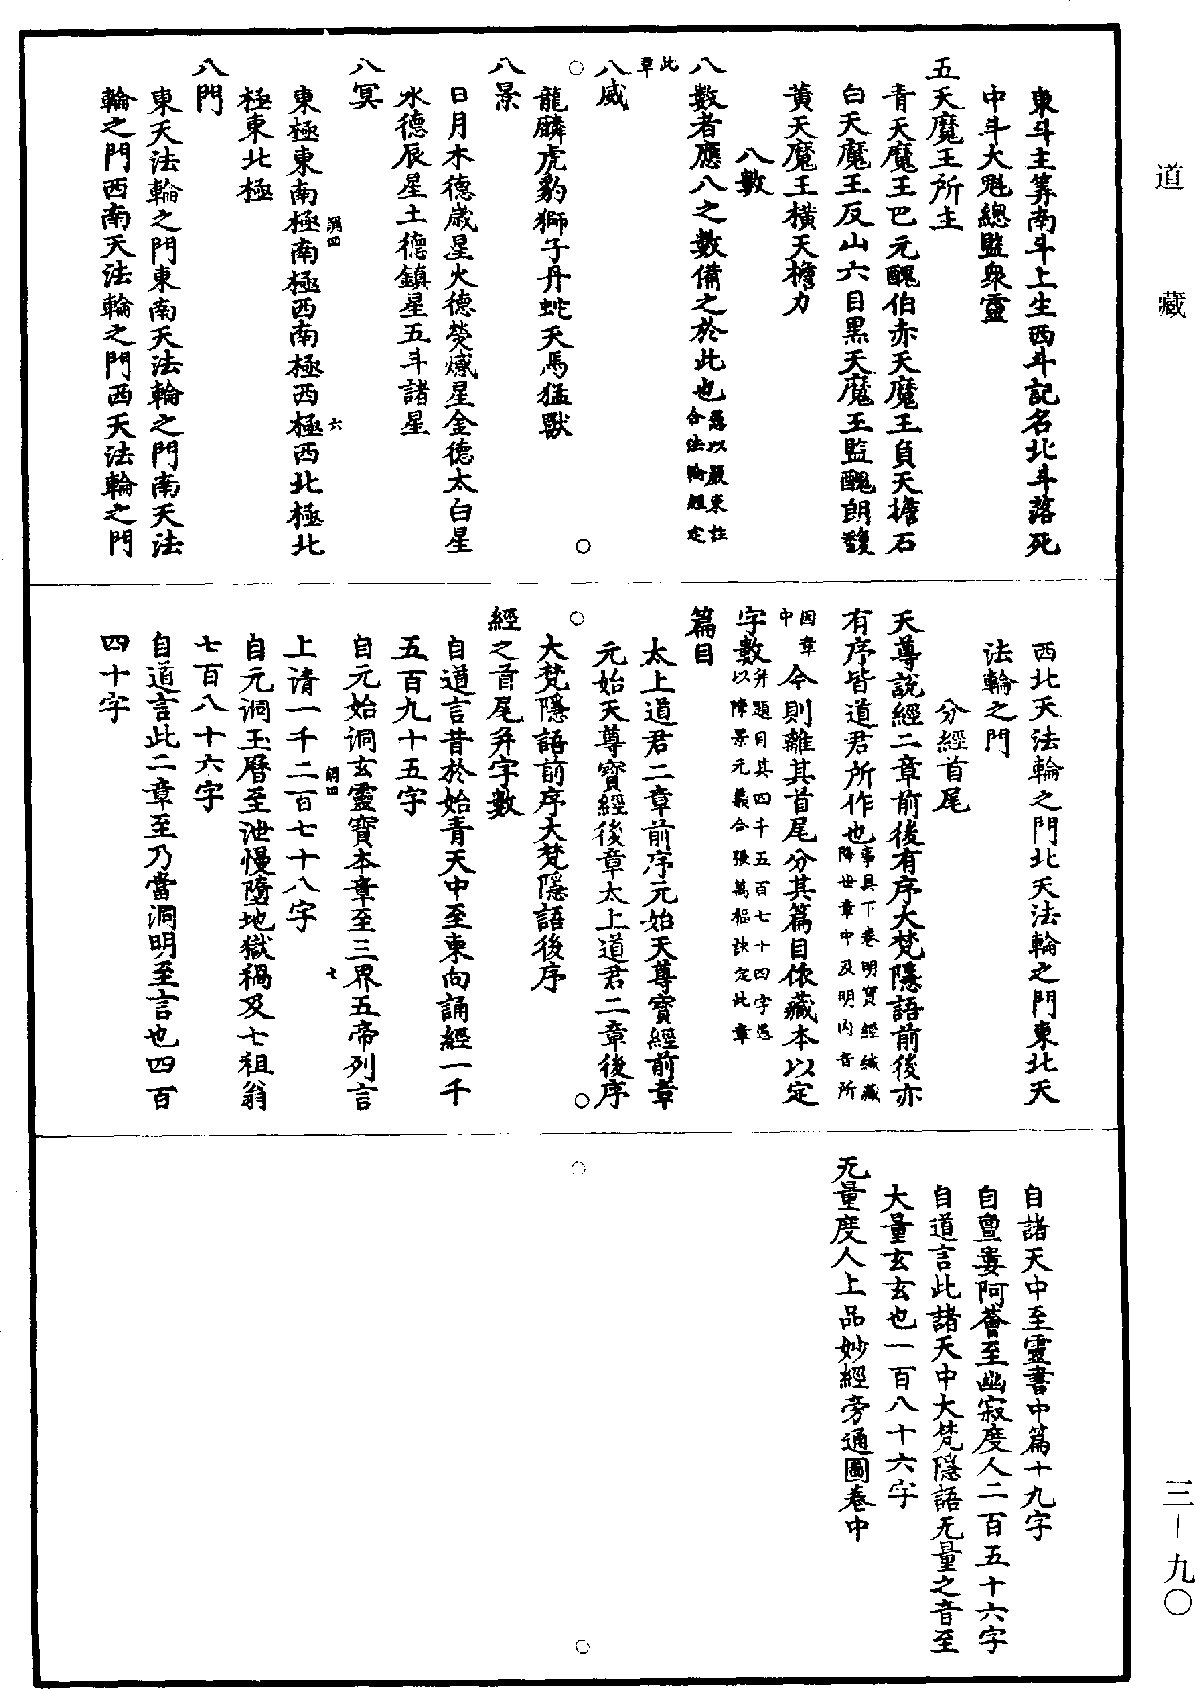 道藏
東斗主筭南斗上生西斗記名北斗落死
中斗大魁總監衆靈
五天魔王所主
青天魔王巴元醜伯赤天魔王負天擔石
白天魔王反山六目黑天魔王監醜朗馥
黃天魔王橫天檐力
八數
八數者應八之數備之於此也愚以嚴東註
合法輪經定
此
章
八威
龍麟虎豹獅子丹蛇天馬猛獸
八景
日月木德歲星火德熒惑星金德太白星
水德辰星土德鎮星五斗諸星
八冥
東極東南極南極西南極西極西北極北
極東北極
八門
東天法輪之門東南天法輪之門南天法
輪之門西南天法輪之門西天法輪之門
西北天法輪之門北天法輪之門東北天
法輪之門
分經首尾
天尊說經二章前後有序大梵隱語前後亦
有序皆道君所作也事具下卷明寶經緘藏
降世章中及明內音所
因章
中
今則離其首尾分其篇目依藏本以定
字數并題目其四千五百七十四字愚
以陳景元義合張萬福訣定此章
篇目
太上道君二章前序元始天尊寶經前章
元始天尊寶經後章太上道君二章後序
大梵隱語前序大梵隱語後序
經之首尾并字數
自道言昔於始青天中至東向誦經一千
五百九十五字
自元始洞玄靈寶本章至三界五帝列言
上清一千二百七十八字
自元洞玉曆至泄慢墮地獄禍及七祖翁
七百八十六字
自道言此二章至乃當洞明至言也四百
四十字
自諸天中至靈書中篇十九字
自亶婁阿薈至幽寂度人二百五十六字
自道言此諸天中大梵隱語无量之音至
大量玄玄也一百八十六字
无量度人上品妙經旁通圖卷中
三－九〇